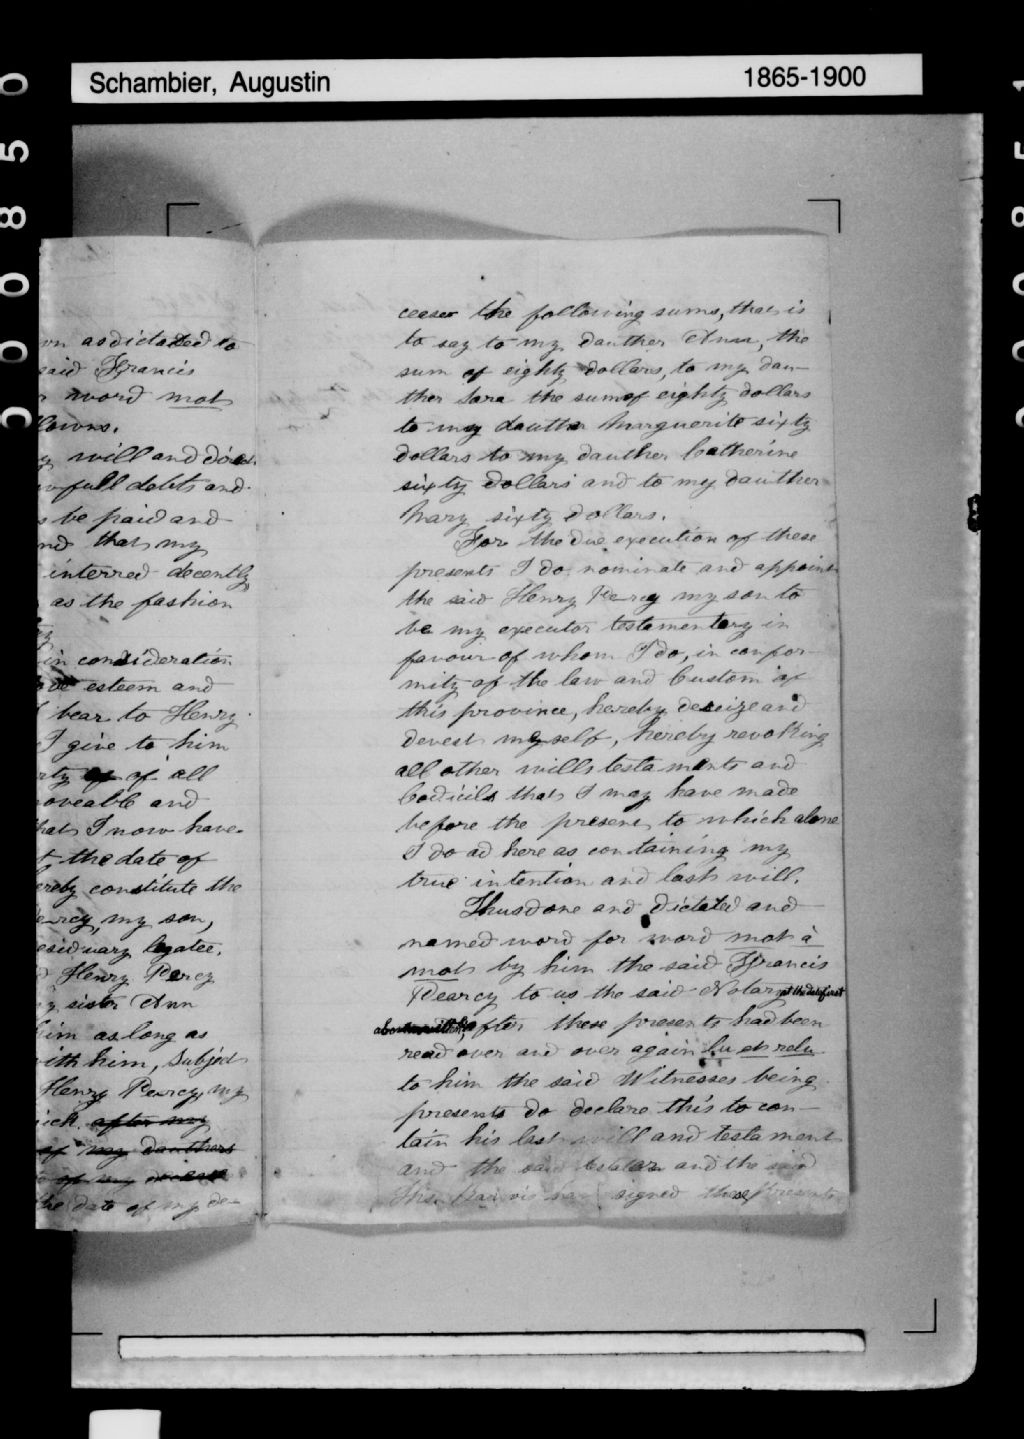 Schambier, Augustin
1865-1900
as dictated to
said Francis
word mot
lows.
will and d
full debts and
be paid and
and that my
interred decently
as the fashion
in consideration
esteem and
bear to Henry
I give to him
of all
moveable and
that I now have
the date of
hereby constitute the
my son,
residuary legatee.
Henry Percy
my sister Ann
him as long as
with him, Subject
Henry Pearcy, my
after my
of my dauthers
of my
the date of my de-
cease the following sums, that is
to say to my dauther Ann, the
sum of eighty dollars, to my dau-
ther Sara the sum of eighty dollars
to my dauther Marguerite sixty
dollars to my dauther Catherine
sixty dollars and to my dauther
Mary sixty dollars.
For the due execution of these
presents I do nominate and appoint
the said Henry Percy my son to
be my executor testamentary in
favour of whom I do, in confor-
mity of the law and Custom of
this province, hereby deseize and
devest myself, hereby revoking
all other wills testaments and
Codicils that I may have made
before the present to which alone
I do ad here as containing my
true intention and last will.
Thus done and dictated and
named word for word mot à
mot by him the said Francis
Pearcy to us the said Notary at the date first
above written, after these presents had been
read over and over again lu et relu
to him the said Witnesses being
presents do declare this to con-
tain his last will and testament
and the said testator and the said
signed these presents
000850